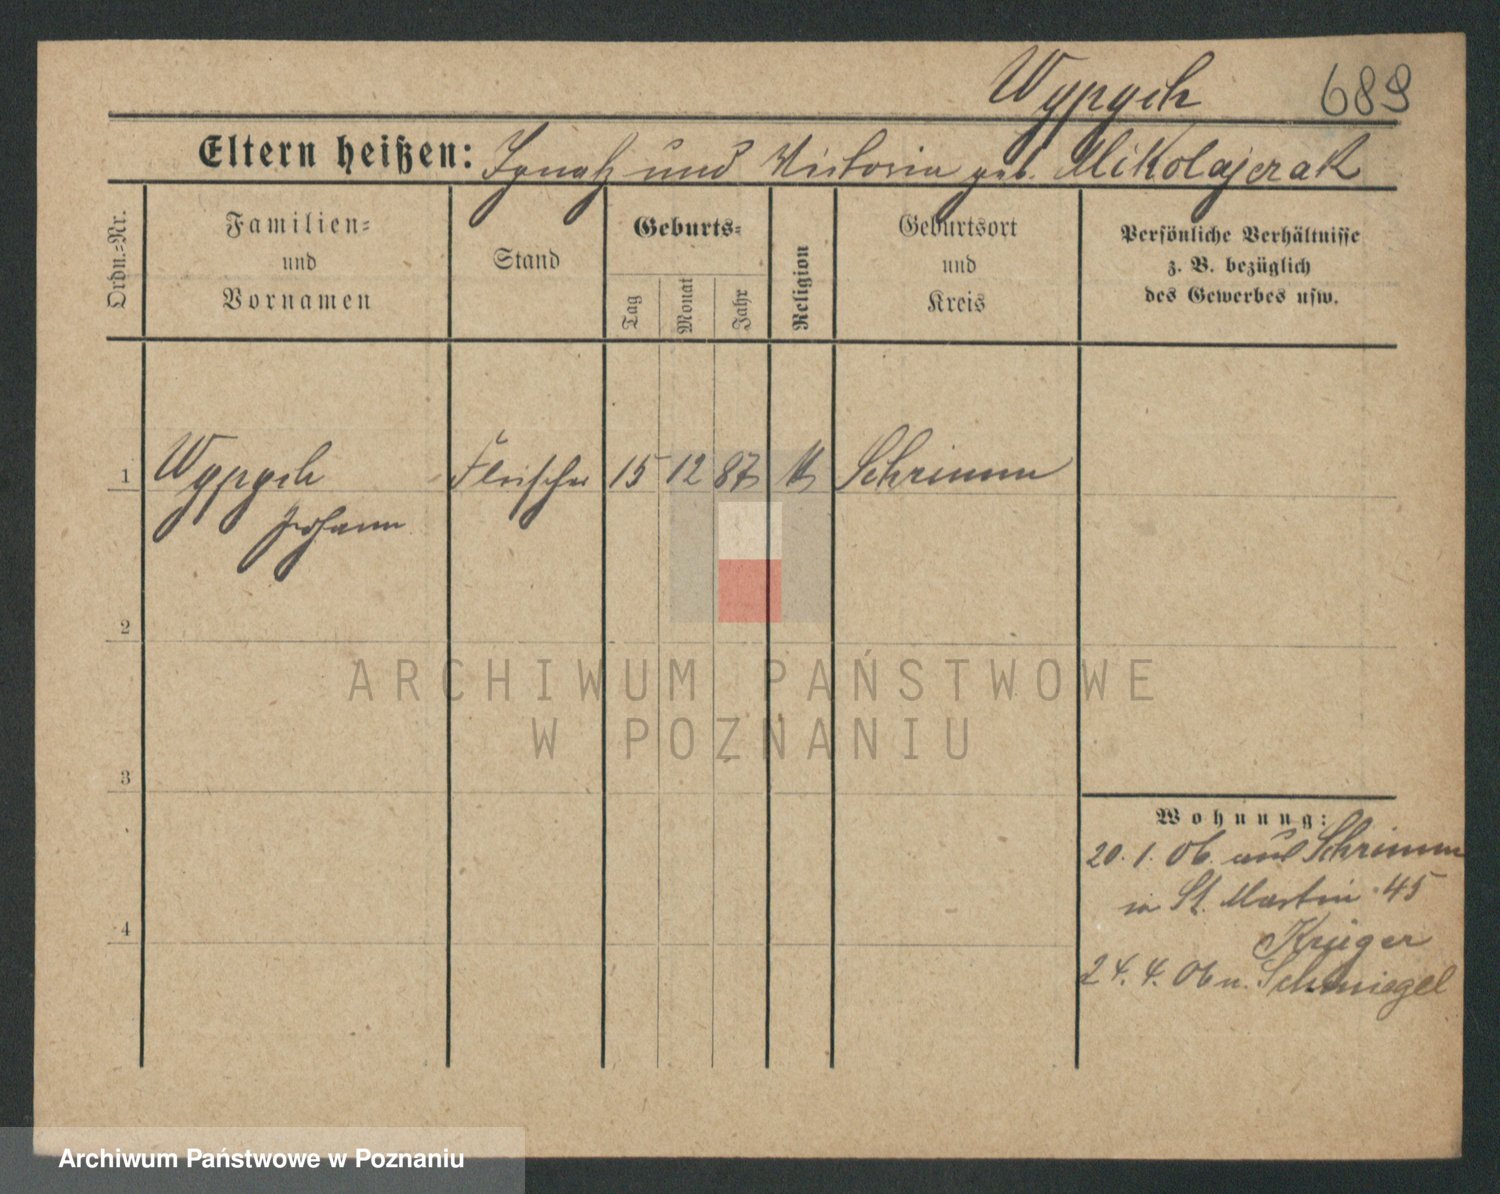 Wypych 689
Eltern heißen: Ignatz und Victoria geb. Mikolajczak
Ordn.=Nr.
Familien=
und
Vornamen
Stand
Geburts=
Tag
Monat
Jahr
Religion
Geburtsort
und
Kreis
Persönliche Verhältnisse
z. B. bezüglich
des Gewerbes usw.
1 Wypych Fleischer 15 12 87 Schrimm
Johann
2
3
4
Wohnung:
20. 1. 06. aus Schrimm
in St. Martin 45
Krüger
24. 4. 06 n. Schmiegel
ARCHIWUM PAŃSTWOWE
W POZNANIU
Archiwum Państwowe w Poznaniu